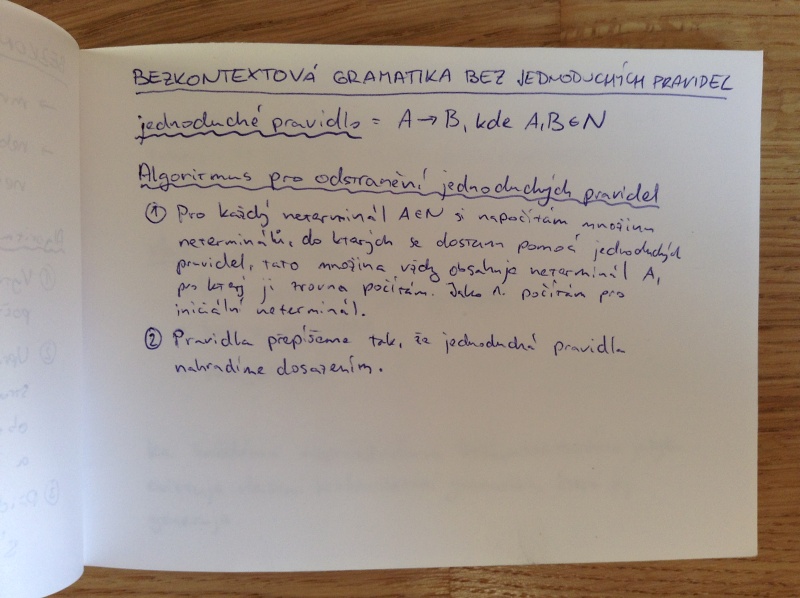 BEZKONTEXTOVÁ GRAMATIKA BEZ JEDNODUCHÝCH PRAVIDEL
jednoduché pravidlo = A → B, kde A,B ∈ N
Algoritmus pro odstranění jednoduchých pravidel
① Pro každý neterminál A∈N si napočítám množinu
neterminálů, do kterých se dostanu pomocí jednoduchých
pravidel, tato množina vždy obsahuje neterminál A,
pro který ji zrovna počítám. Jako 1. počítám pro
iniciální neterminál.
② Pravidla přepíšeme tak, že jednoduchá pravidla
nahradíme dosazením.